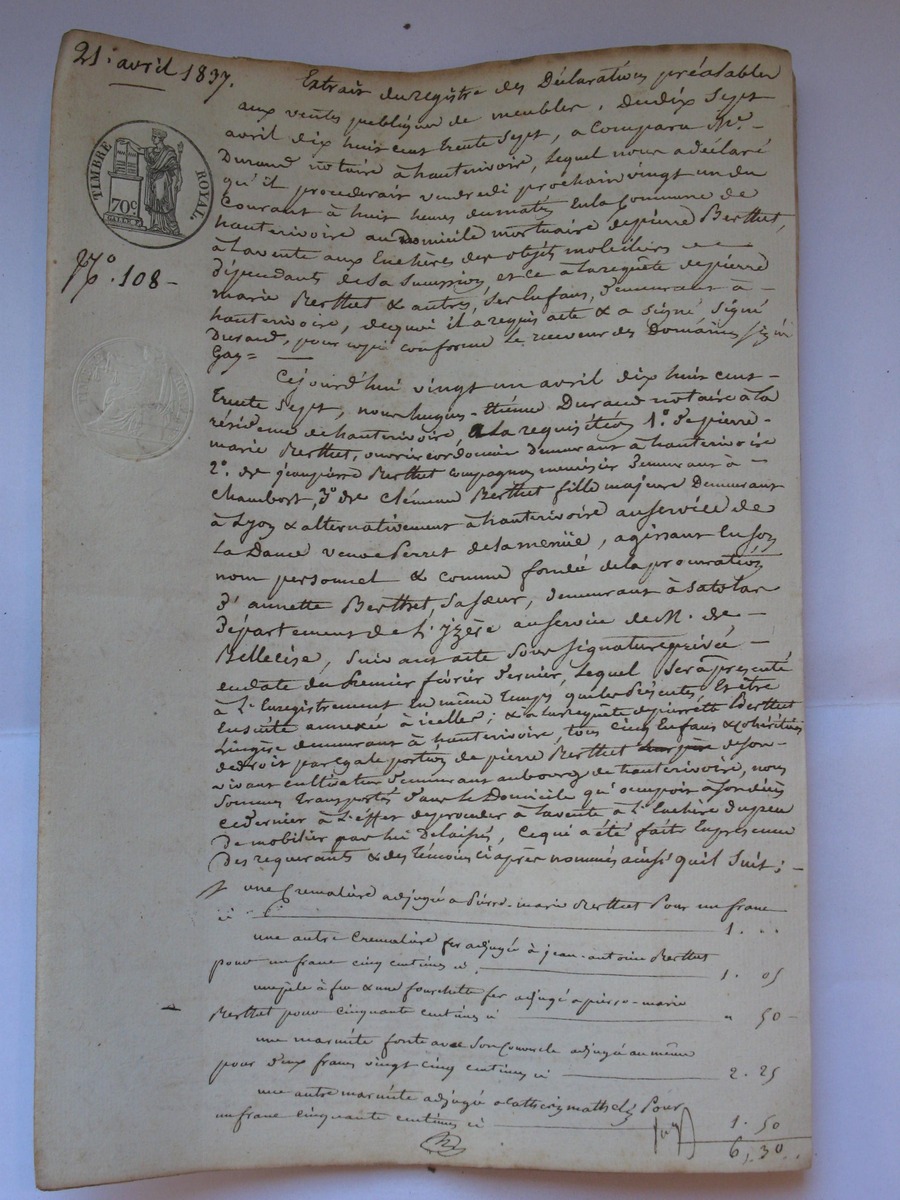 21. avril 1837.
Extrait du registre des Déclarations préalables
aux ventes publiques de meubles, du dix sept
avril dix huit cent trente sept, a comparu Me.
Durand notaire à hauterivoire, lequel nous a déclaré
qu'il procéderait vendredi prochain vingt un du
courant à huit heures du matin en la Commune de
hauterivoire au Domicile mortuaire de pierre Berthet,
à la vente aux Enchères des objets mobiliers
dépendants de sa succession, et ce à la requête de pierre
marie Berthet & autres, ses Enfans, demeurant à
hauterivoire, de quoi il a requis acte & a signé, signé
Durand, pour copie conforme le receveur des Domaines signé
Gay =
TIMBRE ROYAL
70c
No. 108 -
Cejourd'hui vingt un avril dix huit cent
trente sept, nous Durand notaire à la
résidence de hauterivoire, a la requisition 1o. de pierre
marie Berthet, ouvrier cordonnier demeurant à hauterivoire
2o. de jean pierre Berthet compagnon menuisier demeurant à
Chambost, 3o. de Clémence Berthet fille majeure demeurant
à Lyon & alternativement à hauterivoire au service de
la Dame veuve Perret de la menüe, agissant en son
nom personnel & comme fondée de la procuration
d'annette Berthet, sa sœur, demeurant à Satolas
département de L'yzère au service de M. de
Bellecise, suivant acte sous signature privée
en date du premier février dernier, lequel sera présenté
à l'Enregistrement en même temps que les présentes, Et être
Ensuite annexée à icelles; & à la requête de pierrette Berthet
Lingère demeurant à hauterivoire, tous cinq Enfans & cohéritiers
de droit par égale portion de pierre Berthet de son
vivant cultivateur demeurant au bourg de hauterivoire, nous
sommes transportés dans le Domicile qu'occupoit à son décès
ce dernier à L'effet de procéder à la vente à l'Enchère du peu
De mobilier par lui Délaissé, ce qui a été fait En présence
des requérants & des témoins ci après nommés ainsi qu'il suit:
une Cremalière adjugée à Pierre-marie Berthet Pour un franc
ci 1. ..
une autre Cremalière fer adjugée à jean-antoine Berthet
pour un franc cinq centimes ci 1. 05
une pêle à feu & une fourchette fer adjugé a pierre-marie
Berthet pour cinquante centimes ci " 50
une marmite fonte avec son Couvercle adjugée au même
pour deux francs vingt cinq centimes ci 2. 25
une autre marmite adjugée a Pour
un franc cinquante centimes ci 1. 50
6, 30